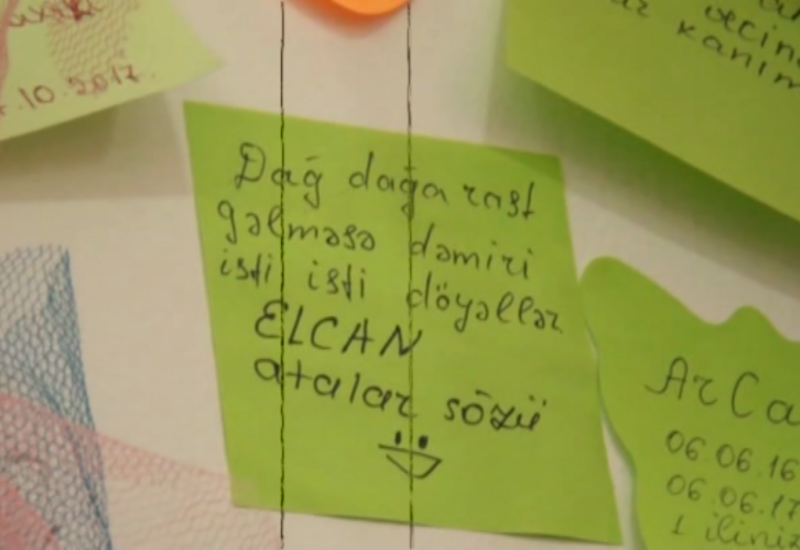 .10.2017.
Dağ dağa rast
gəlməsə dəmiri
isti isti döyəllər
ELCAN
atalar sözü
ArCa
06.06.16
06.06.17
1 iliniz